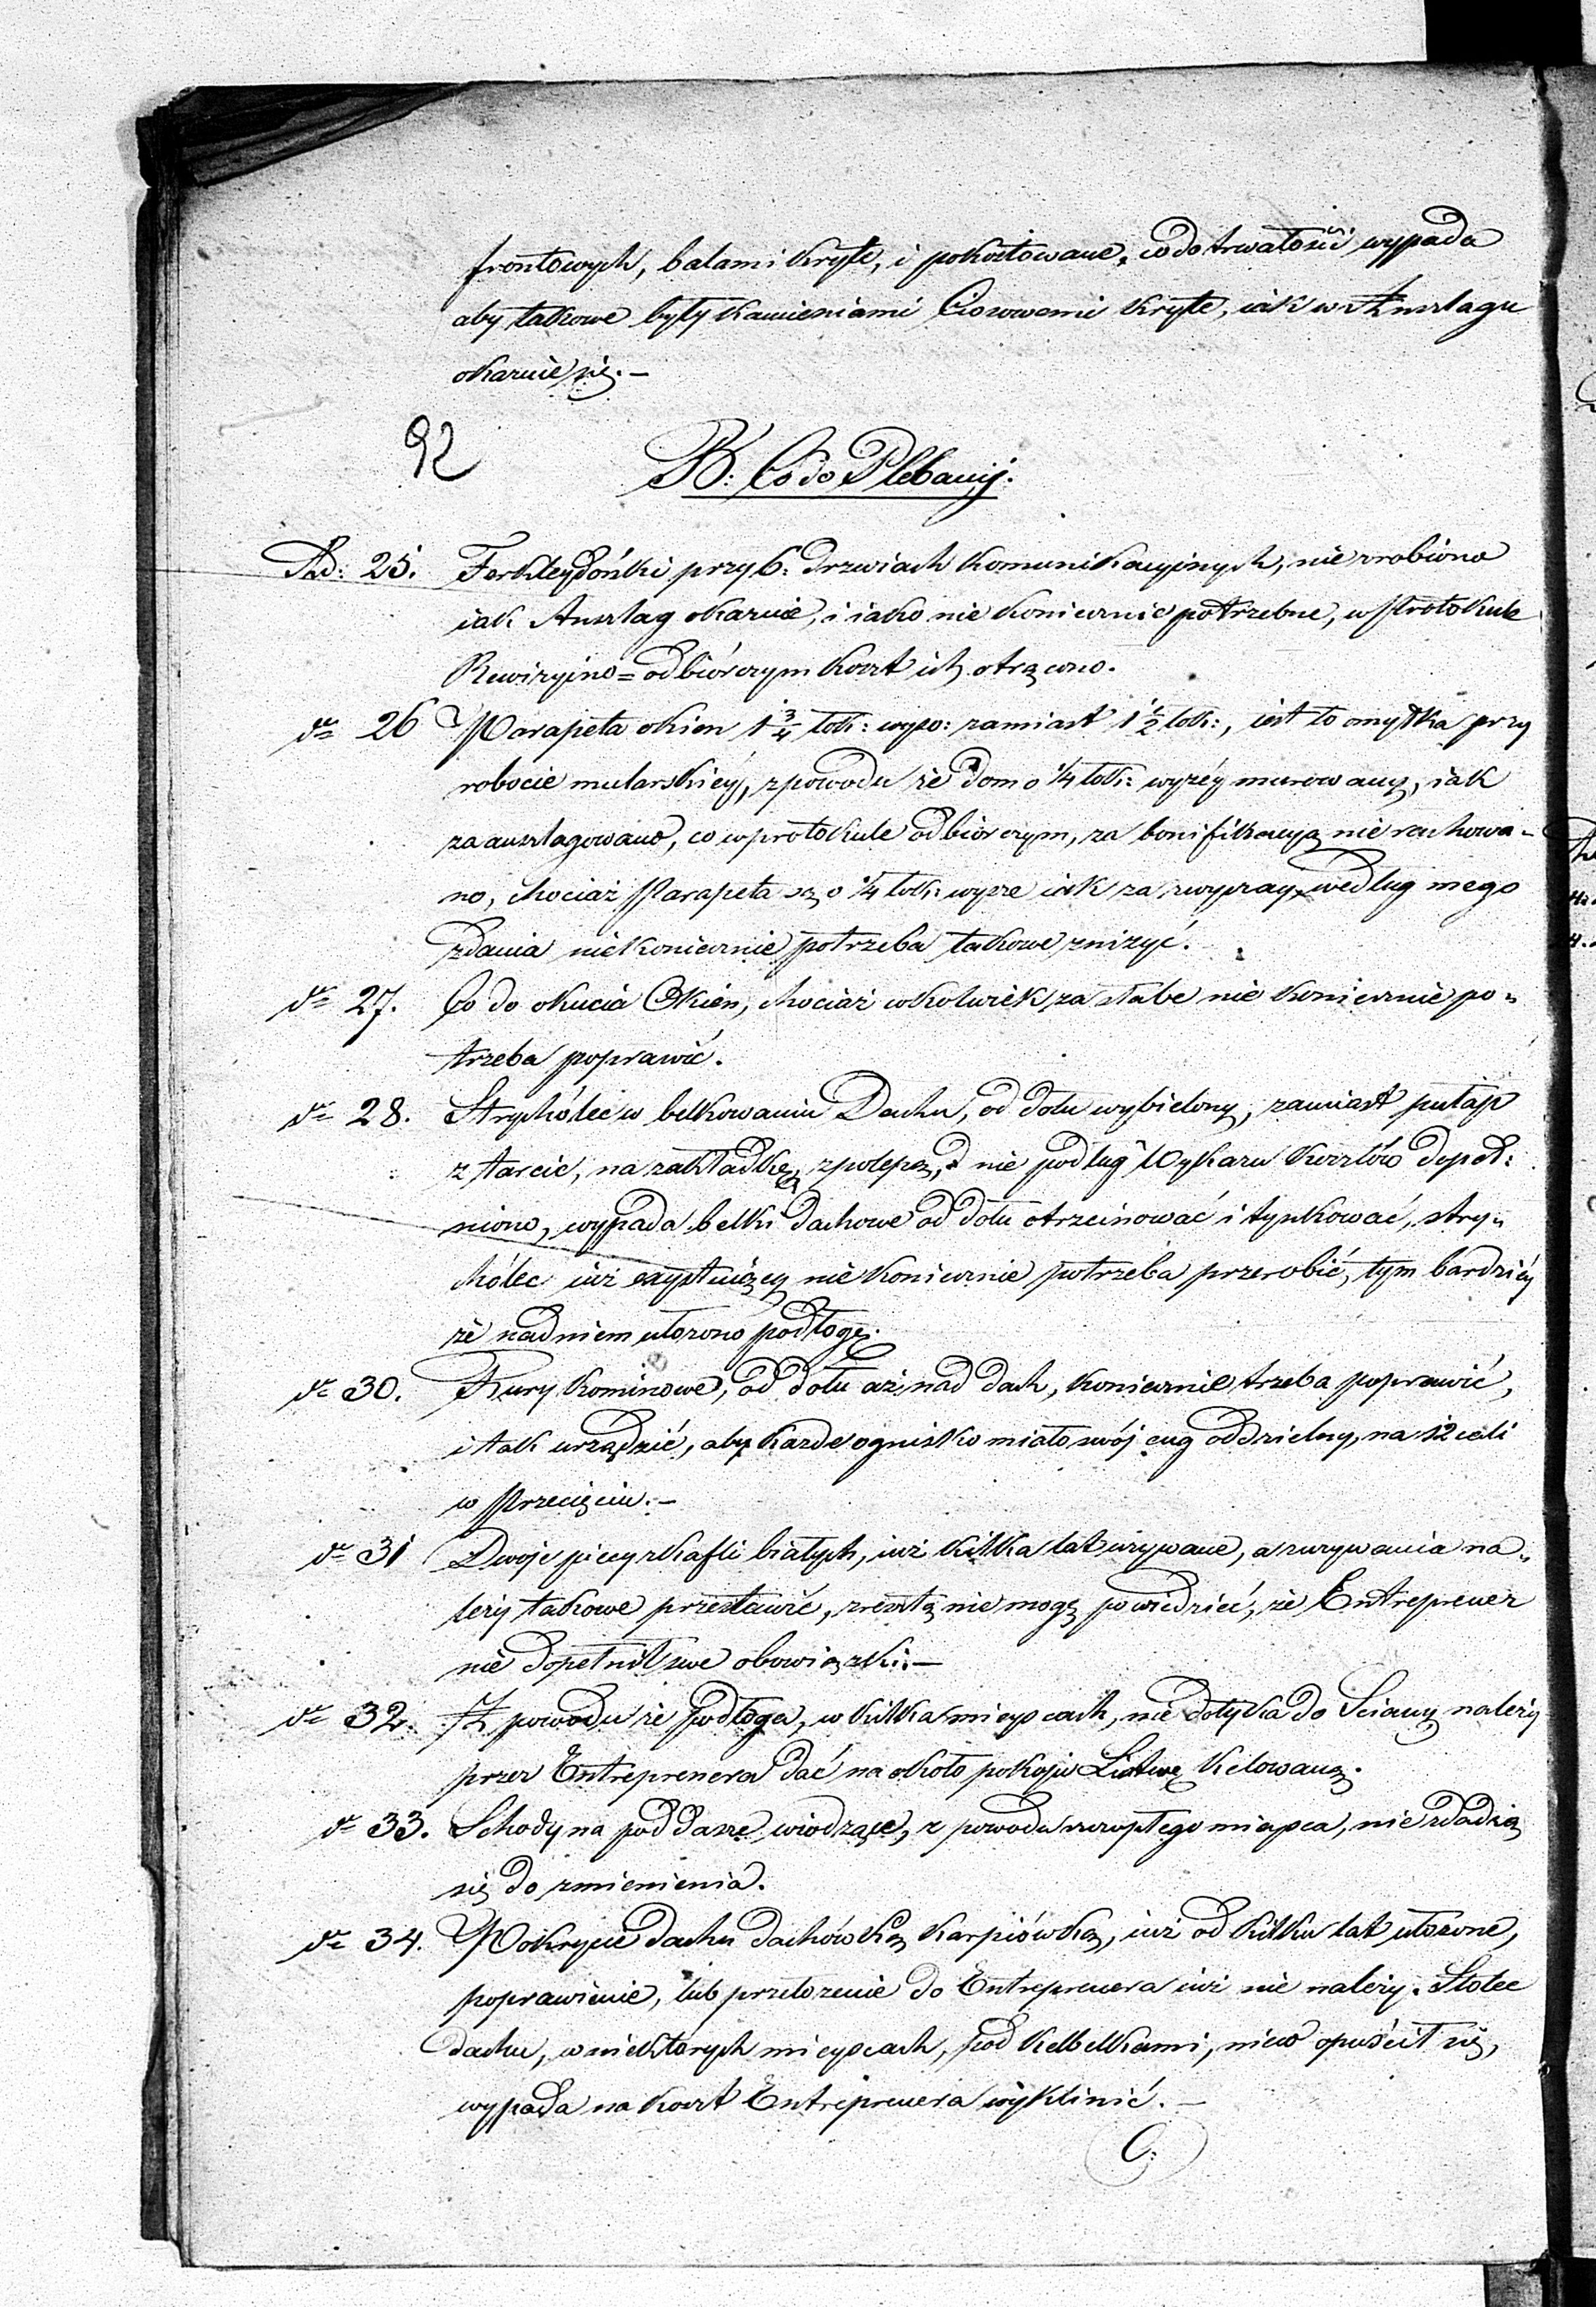 frontowych, balami kryte, i pokostowane, co do trwałości wypada
aby takowe były kamieniami Ciosowemi kryte, iak w Anszlagu
okazuie się.—
92
B: Co do Plebanij.
Ad: 25. Ferkleydónki przy 6: drzwiach komunikacyjnych, nie zrobiono
iak Anszlag okazuie, i iako nie koniecznie potrzebne, w Protokule
Rewizyjno=odbiórczym koszt ich otrącono.
do 26 Parapeta okien 1 3/4 łok: wyso: zamiast 1 1/2 łok:, iest to omyłka przy
robocie mularskiéy, z powodu że dom o 1/4 łok: wyżéy murowany, iak
zaanszlagowano, co w protokule odbiórczym, za bonifikacyą nie rachowa-
no, chociaż Parapeta są o 1/4 łok: wyższe iak zazwyczay, według mego
zdania niekoniecznie potrzeba takowe zniżyć.
do 27. Co do okucia Okien, chociaż cokolwiek za słabe nie koniecznie po-
trzeba poprawić.
do 28. Strychólec w belkowaniu Dachu, od dołu wybielony, zamiast pułap
z tarcic, na zakładkę, z polepą, nie podług Wykazu kosztów dopeł:
niono, wypada belki dachowe od dołu otrzcinować i tynkować, stry-
chólec iuż exystuiący nie koniecznie potrzeba przerobić, tym bardziéy
że nad niem ułożono podłogę.
do 30. Rury kominowe, od dołu aż nad dach, koniecznie trzeba poprawić,
i tak urządzić, aby każde ognisko miało swój cug oddzielny, na 12 cali
w Przecięciu.—
do 31 Dwoje piecy z kafli białych, iuż kilka lat używane, a z używania na-
leży takowe przestawić, zresztą nie mogę powiedzieć, że Entreprener
nie dopełnił swe obowiązki.—
do 32. Z powodu że podłoga, w kilka mieyscach, nie dotyka do Sciany należy
przez Entreprenera dać na około pokoju Listwę kelowaną.
do 33. Schody na poddasze wiodzące, z powodu szczupłego mieysca, nie zdadzą
się do zmienienia.
do 34. Pokrycie dachu dachówką karpiówką, iuż od kilku lat ułożone,
poprawienie, lub przełożenie do Entreprenera iuż nie należy. Stolec
dachu, w niektórych mieyscach, pod kelbelkami, nieco opuścił się,
wypada na koszt Entreprenera wyklinić.—
C: